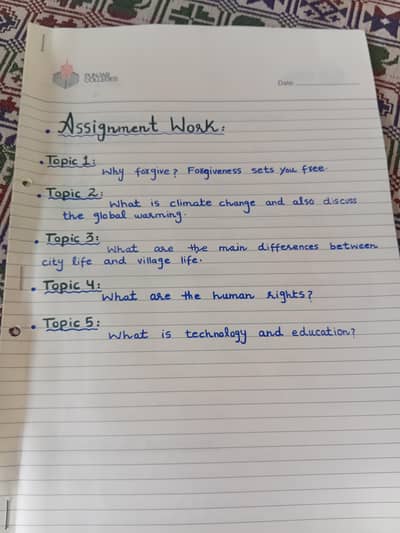 PUNJAB
COLLEGES
Date:
• Assignment Work:
• Topic 1:
Why forgive? Forgiveness sets you free.
• Topic 2:
What is climate change and also discuss
the global warming.
• Topic 3:
What are the main differences between
city life and village life.
• Topic 4:
What are the human rights?
• Topic 5:
What is technology and education?